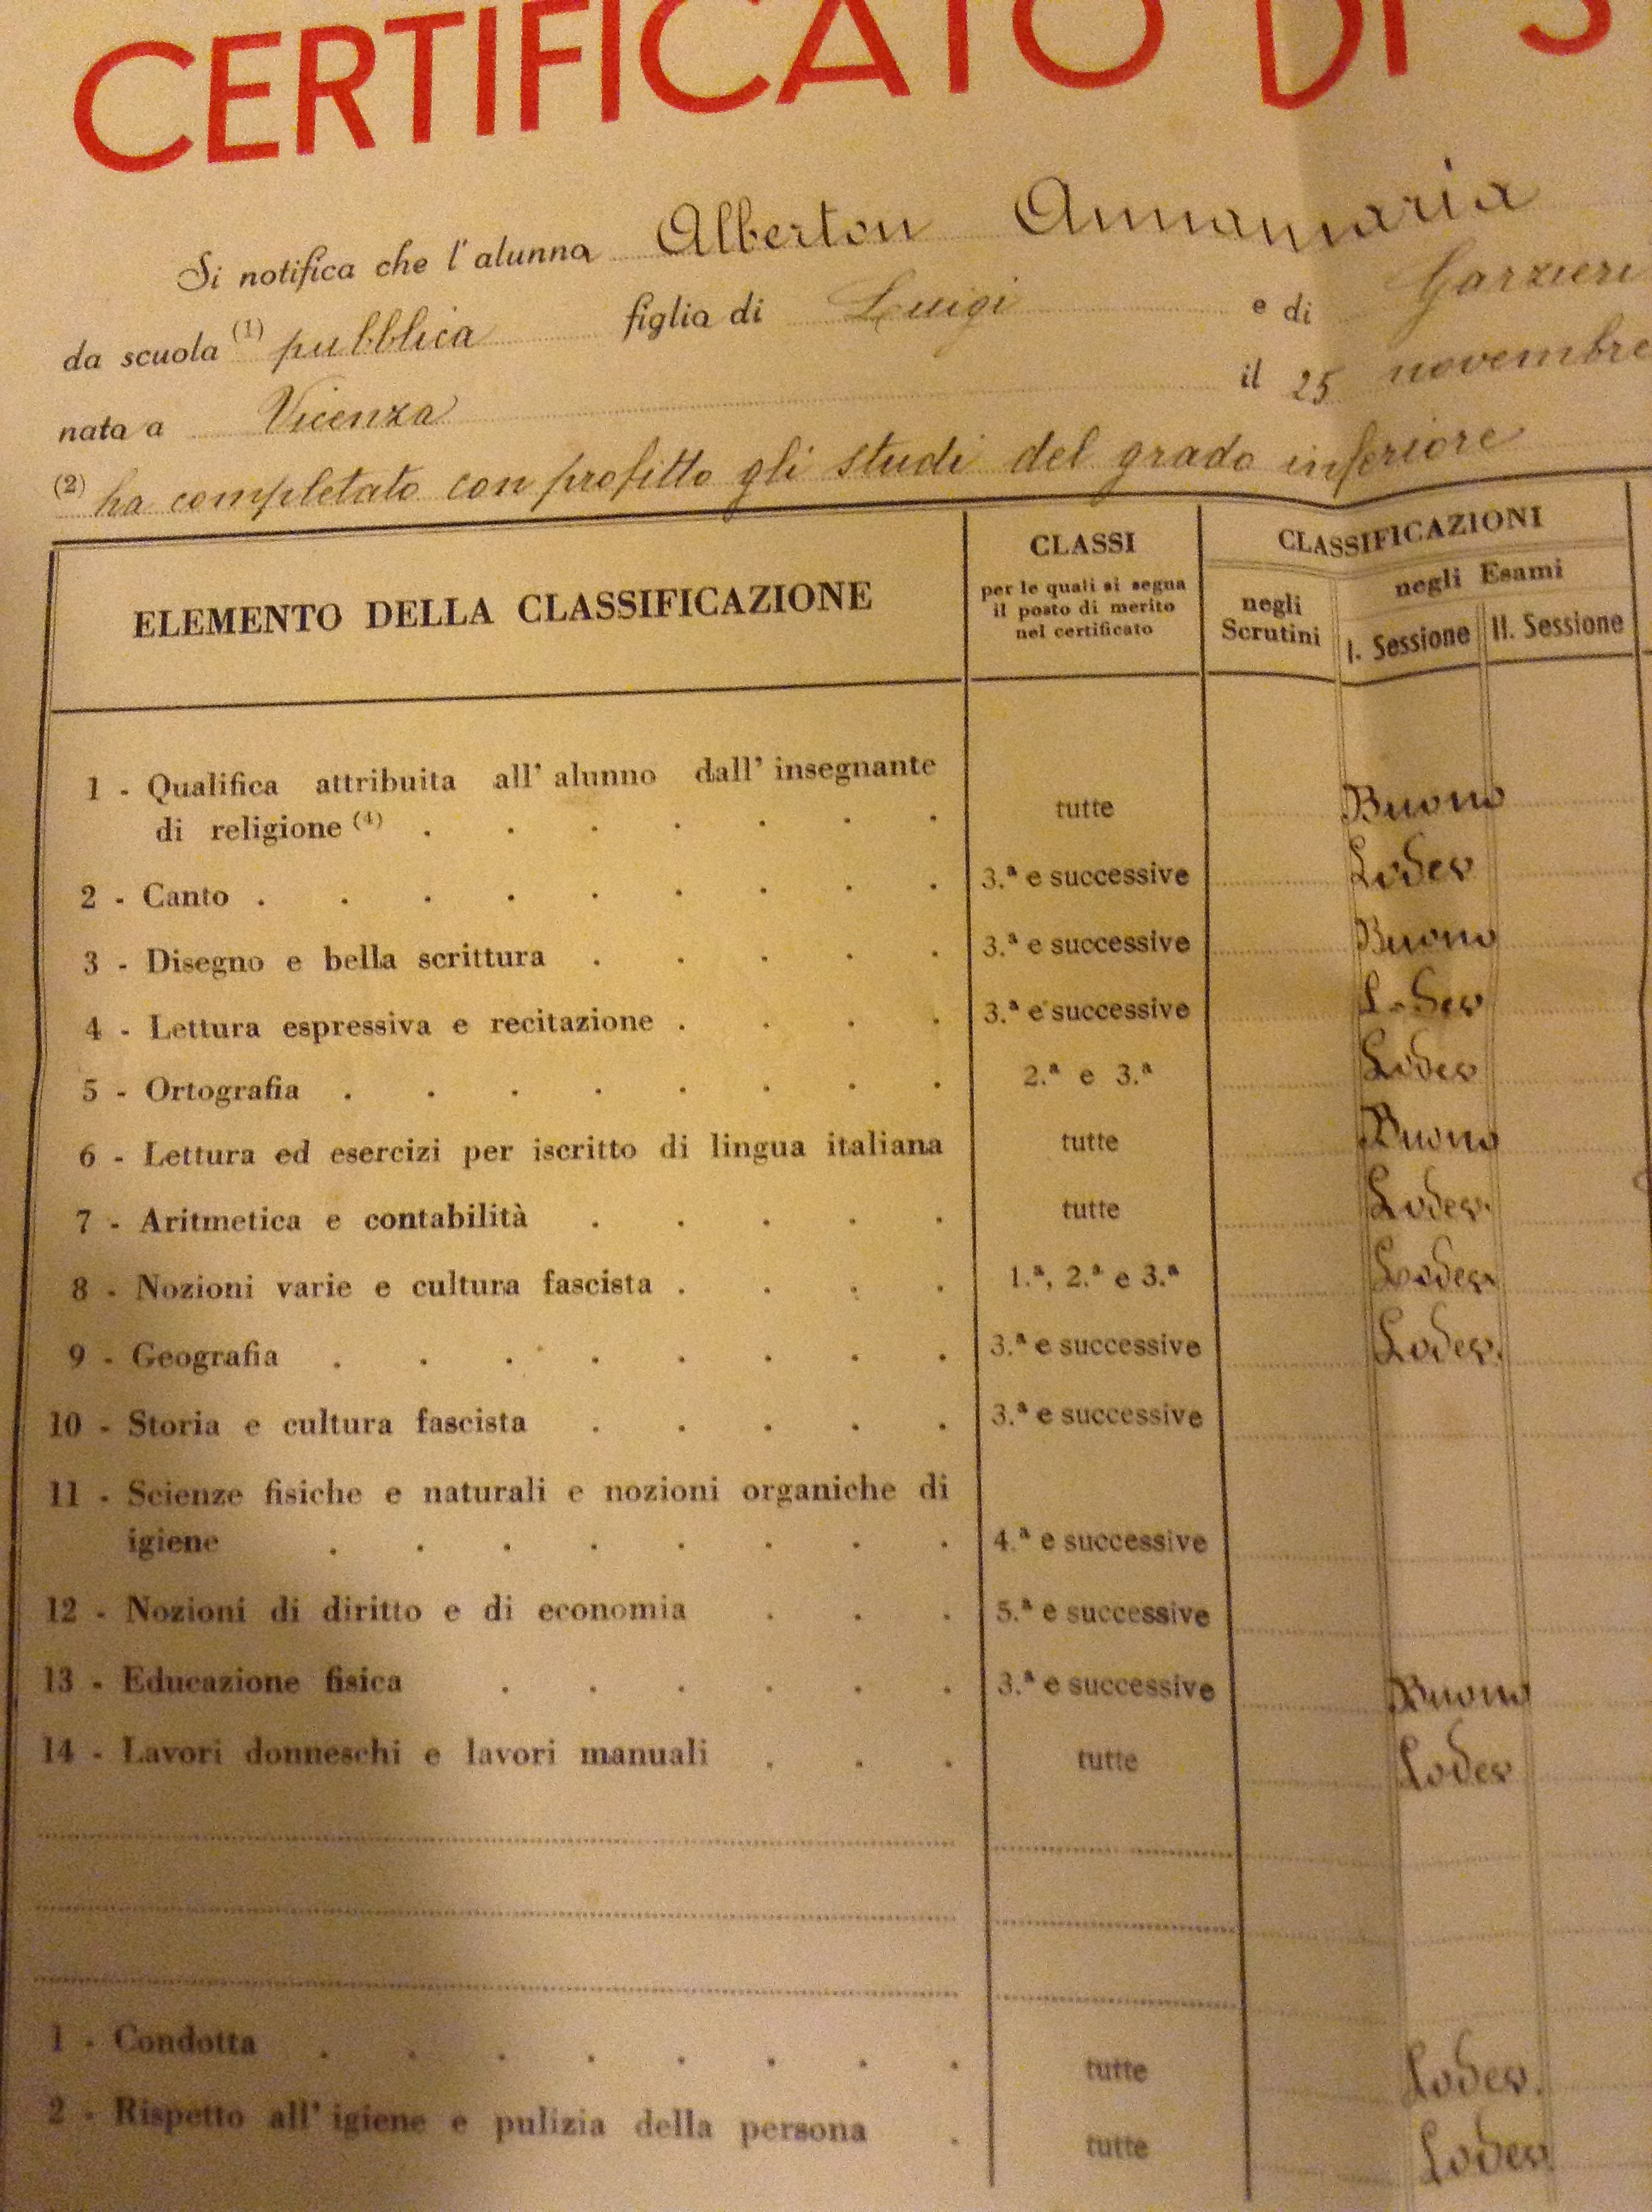 CERTIFICATO DI S
Si notifica che l'alunna Alberton Annamaria
da scuola (1) pubblica figlia di Luigi e di Garzieri
nata a Vicenza il 25 novembre
(2) ha completato con profitto gli studi del grado inferiore
ELEMENTO DELLA CLASSIFICAZIONE
CLASSI
per le quali si segna
il posto di merito
nel certificato
CLASSIFICAZIONI
negli
Scrutini
negli Esami
I. Sessione II. Sessione
1 - Qualifica attribuita all' alunno dall' insegnante
di religione (4) . . . . . . . tutte Buono
2 - Canto . . . . . . . . . 3.ª e successive Lodev
3 - Disegno e bella scrittura . . . . . 3.ª e successive Buono
4 - Lettura espressiva e recitazione . . . . 3.ª e successive Lodev
5 - Ortografia . . . . . . . . 2.ª e 3.ª Lodev
6 - Lettura ed esercizi per iscritto di lingua italiana tutte Buono
7 - Aritmetica e contabilità . . . . . tutte Lodev.
8 - Nozioni varie e cultura fascista . . . . 1.ª, 2.ª e 3.ª Lodev.
9 - Geografia . . . . . . . . 3.ª e successive Lodev.
10 - Storia e cultura fascista . . . . . 3.ª e successive
11 - Scienze fisiche e naturali e nozioni organiche di
igiene . . . . . . . . 4.ª e successive
12 - Nozioni di diritto e di economia . . . 5.ª e successive
13 - Educazione fisica . . . . . . 3.ª e successive Buono
14 - Lavori donneschi e lavori manuali . . . tutte Lodev
1 - Condotta . . . . . . . . tutte Lodev.
2 - Rispetto all' igiene e pulizia della persona . tutte Lodev.